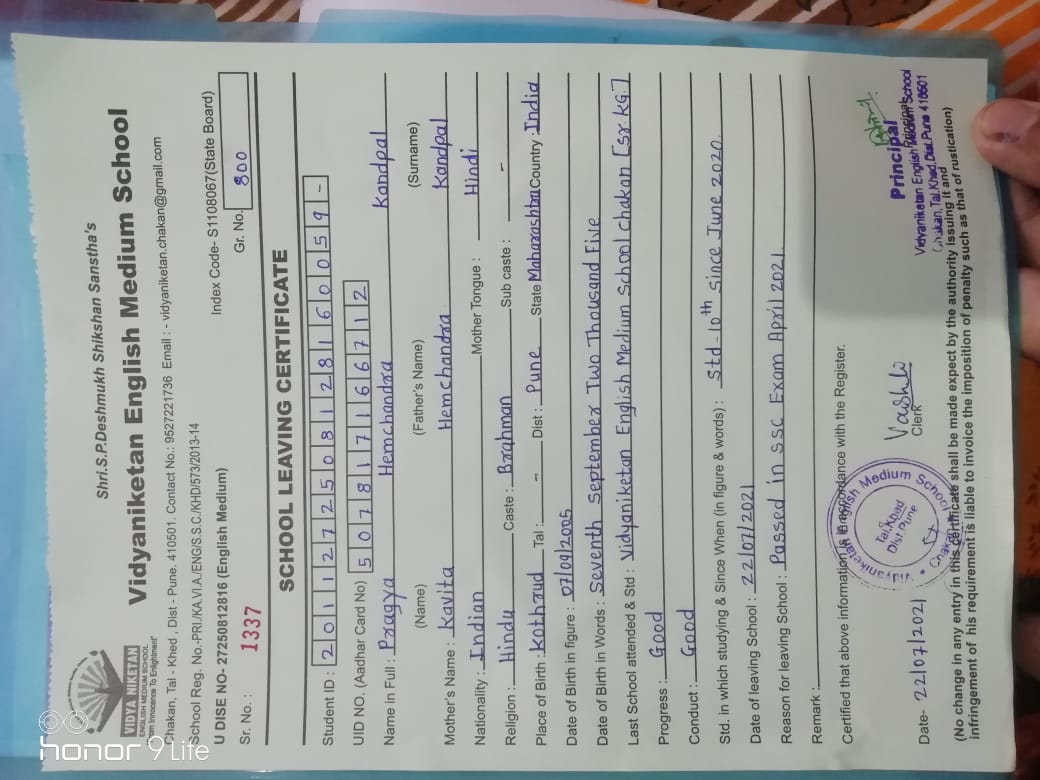 Shri.S.P.Deshmukh Shikshan Sanstha's
Vidyaniketan English Medium School
VIDYA NIKETAN
ENGLISH MEDIUM SCHOOL
"From Innocence To Enlightment"
Chakan, Tal - Khed , Dist - Pune. 410501. Contact No.: 9527221736 Email : - vidyaniketan.chakan@gmail.com
School Reg. No.-PRI./KA.VI.A./ENG/S.S.C./KHD/573/2013-14
Index Code- S1108067(State Board)
U DISE NO- 27250812816 (English Medium)
Sr. No.: 1337 Gr. No. 800
SCHOOL LEAVING CERTIFICATE
Student ID : 2011272508128160059-
UID NO. (Aadhar Card No) 507817166712
Name in Full : Pragya Hemchandra Kandpal
(Name) (Father's Name) (Surname)
Mother's Name : Kavita Hemchandra Kandpal
Nationality : Indian Mother Tongue : Hindi
Religion : Hindu Caste : Brahman Sub caste : -
Place of Birth : Kothrud Tal : - Dist : Pune State Maharashtra Country : India
Date of Birth in figure : 07/09/2005
Date of Birth in Words : Seventh September Two Thousand Five
Last School attended & Std : Vidyaniketan English Medium School chakan [Sr.KG.]
Progress : Good
Conduct : Good
Std. in which studying & Since When (in figure & words) : Std - 10th since June 2020.
Date of leaving School : 22/07/2021
Reason for leaving School : Passed in SSC Exam April 2021.
Remark :
Certified that above information is in accordance with the Register.
Vidyaniketan English Medium School
Chakan
Tal.Khad
Dist.Pune
Date- 22/07/2021
Clerk
Principal
Principal
Vidyaniketan English Medium School
Chakan, Tal. Khed, Dist. Pune 410501
(No change in any entry in this certificate shall be made expect by the authority issuing it and
infringement of his requirement is liable to invoice the imposition of penalty such as that of rustication)
honor 9 Lite